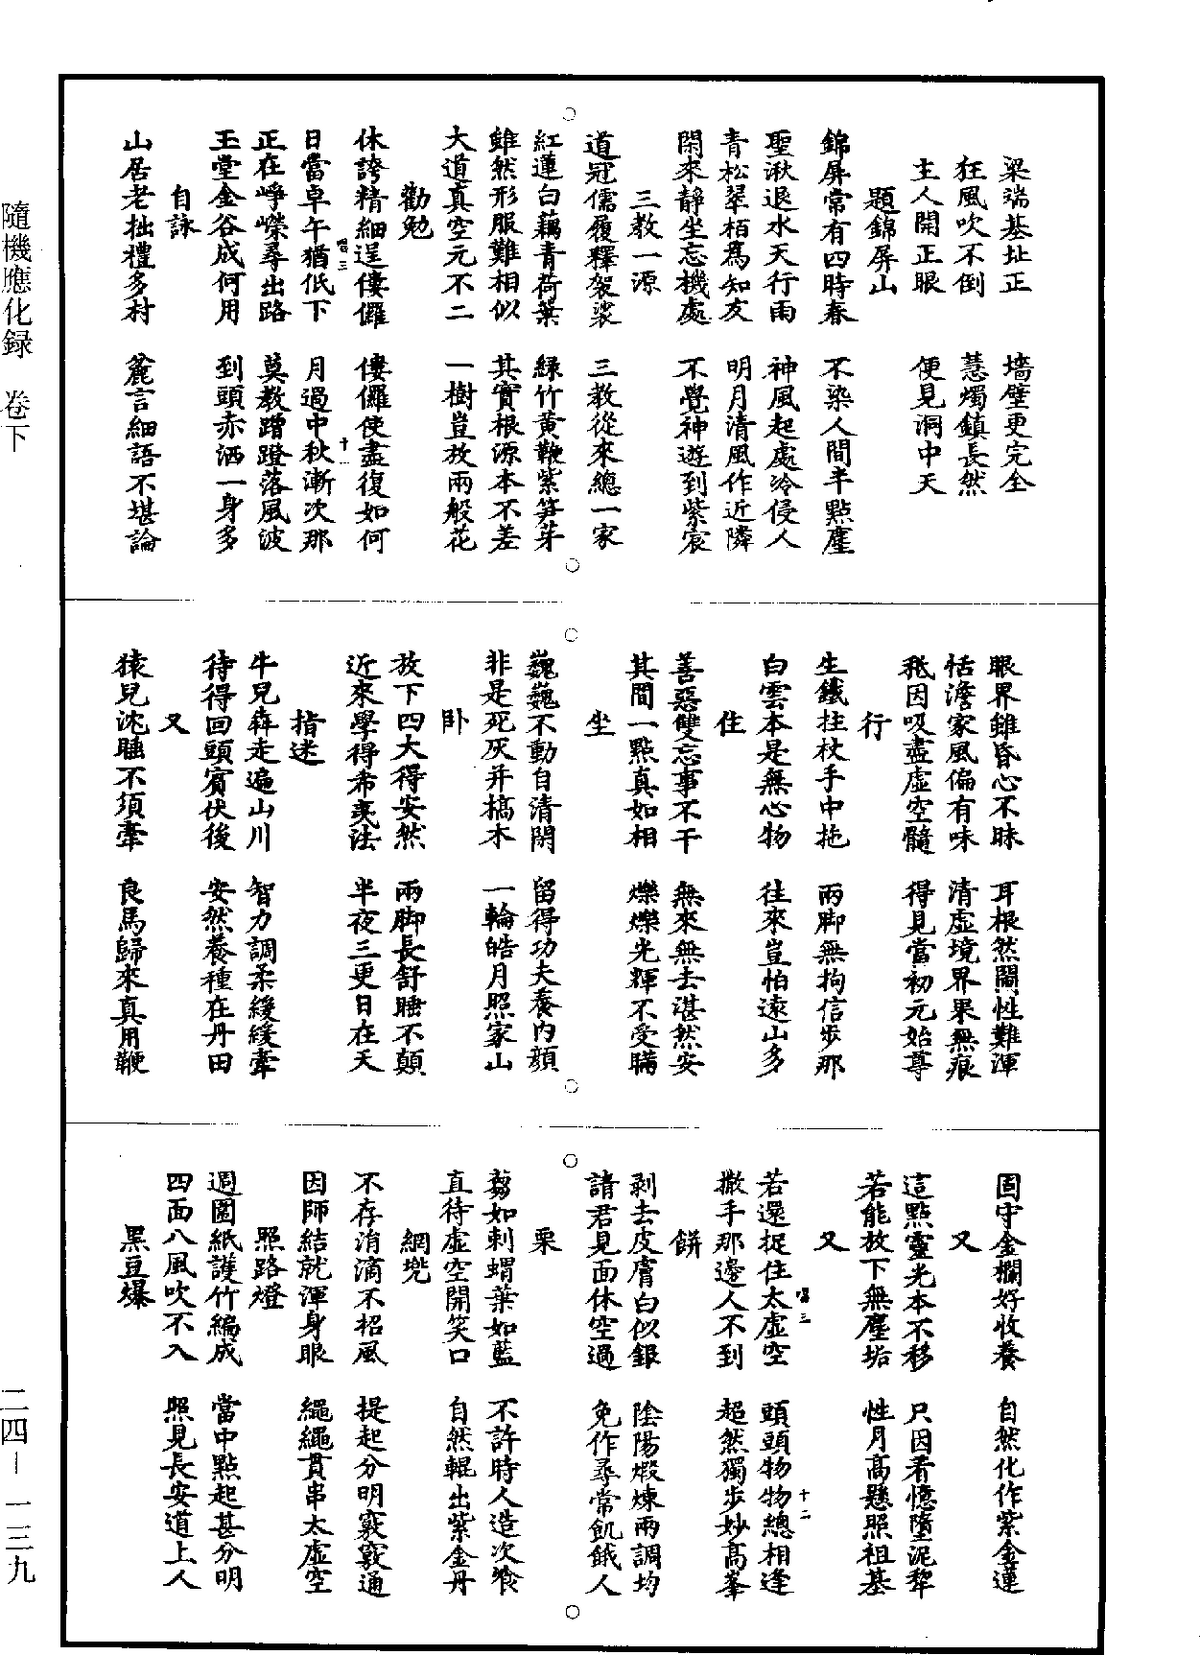 梁端基址正　墻壁更完全
狂風吹不倒　慧燭鎮長然
主人開正眼　便見洞中天
題錦屏山
錦屏常有四時春　不染人間半點塵
聖湫退水天行雨　神風起處冷侵人
青松翠栢為知友　明月清風作近隣
閑來靜坐忘機處　不覺神遊到紫宸
三教一源
道冠儒履釋袈裟　三教從來總一家
紅蓮白藕青荷葉　綠竹黃鞭紫笋芽
雖然形服難相似　其實根源本不差
大道真空元不二　一樹豈放兩般花
勸勉
休誇精細逞僂儸　僂儸使盡復如何
唱三　十一
日當卓午猶低下　月過中秋漸次那
正在崢嶸尋出路　莫教蹭蹬落風波
玉堂金谷成何用　到頭赤洒一身多
自詠
山居老拙禮多村　麄言細語不堪論
眼界雖昏心不昧　耳根然閙性難渾
恬澹家風偏有味　清虛境界果無痕
秪因吸盡虛空髓　得見當初元始尊
行
生鐵拄杖手中拖　兩脚無拘信步那
白雲本是無心物　往來豈怕遠山多
住
善惡雙忘事不干　無來無去湛然安
其間一點真如相　爍爍光輝不受瞞
坐
巍巍不動自清閑　留得功夫養內顏
非是死灰并槁木　一輪皓月照家山
卧
放下四大得安然　兩脚長舒睡不顛
近來學得希夷法　半夜三更日在天
指迷
牛兒犇走遍山川　智力調柔緩緩牽
待得回頭賓伏後　安然養種在丹田
又
猿兒沈睡不須牽　良馬歸來真用鞭
固守金欄好收養　自然化作紫金蓮
又
這點靈光本不移　只因看憶墮泥犂
若能放下無塵垢　性月高懸照祖基
又
唱三　十二
若還捉住太虛空　頭頭物物總相逢
撒手那邊人不到　超然獨步妙高峯
餅
剥去皮膚白似銀　陰陽煅煉兩調均
請君見面休空過　免作尋常飢餓人
栗
蒭如刺蝟葉如藍　不許時人造次飡
直待虛空開笑口　自然輥出紫金丹
網兠
不存涓滴不招風　提起分明竅竅通
因師結就渾身眼　繩繩貫串太虛空
照路燈
週圍紙護竹編成　當中點起甚分明
四面八風吹不入　照見長安道上人
黑豆爆
隨機應化録　卷下
二四—一三九